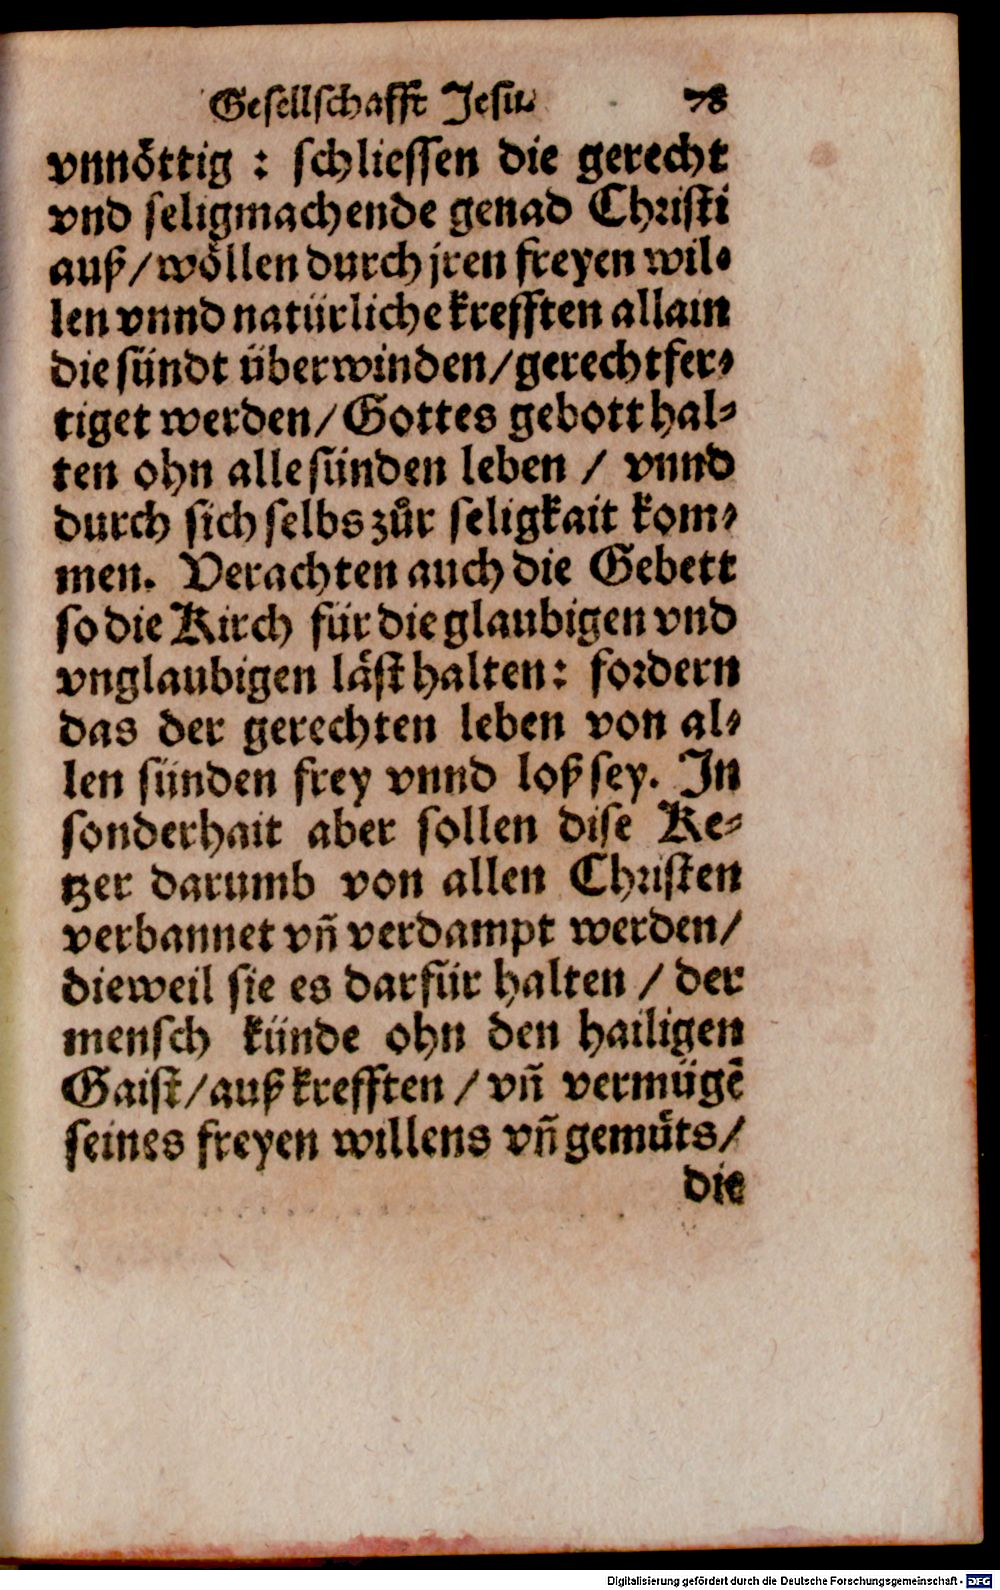 Gesellschafft Jesu. 78
vnnöttig : schliessen die gerecht
vnd seligmachende genad Christi
auß/wöllen durch jren freyen wil⸗
len vnnd natürliche krefften allain
die sündt überwinden/gerechtfer⸗
tiget werden/Gottes gebott hal⸗
ten ohn alle sünden leben / vnnd
durch sich selbs zůr seligkait kom⸗
men. Verachten auch die Gebett
so die Kirch für die glaubigen vnd
vnglaubigen läst halten: fordern
das der gerechten leben von al⸗
len sünden frey vnnd loß sey. In
sonderhait aber sollen dise Ke⸗
tzer darumb von allen Christen
verbannet vñ verdampt werden/
dieweil sie es darfür halten / der
mensch künde ohn den hailigen
Gaist/auß krefften / vñ vermügē
seines freyen willens vñ gemüts/
die
Digitalisierung gefördert durch die Deutsche Forschungsgemeinschaft - DFG